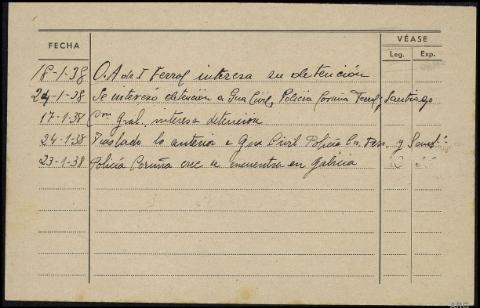 FECHA VÉASE
Leg. Exp.
18-1-38 O. A de I Ferrol interesa su detención
24-1-38 Se interesó detención a Gua Civil, Policia Coruña Ferrol y Santiago
17-1-38 Com Gral. interesa detención
24-1-38 Traslado lo anterior a Gua Civil Policia Co. Ferr. y Sant:
23-1-38 Policia Coruña encuentra en Galicia